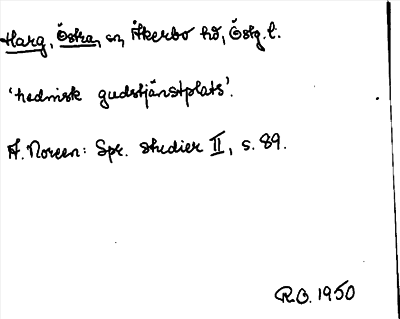 Harg, Östra, sn, Åkerbo hd, Östg.l.
'hednisk gudstjänstplats'.
A. Noreen: Spr. studier II, s. 89.
R.O. 1950